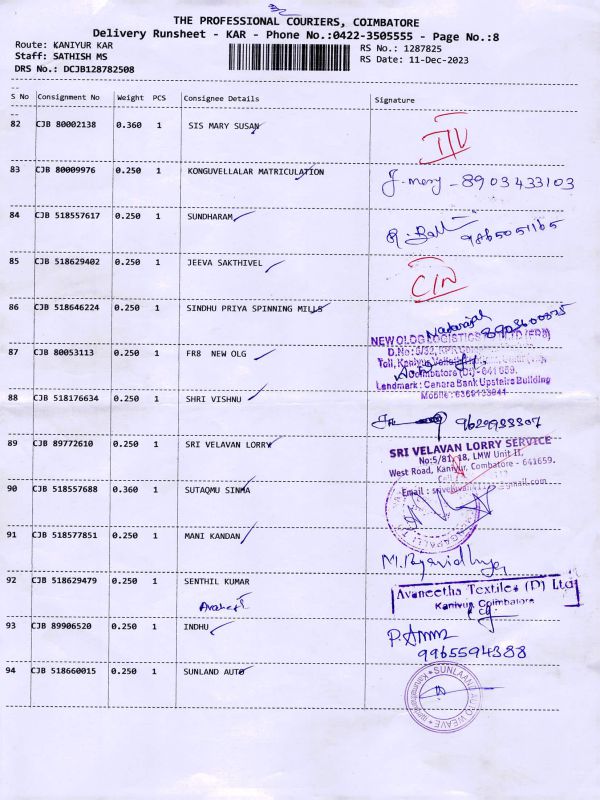 THE PROFESSIONAL COURIERS, COIMBATORE
Delivery Runsheet - KAR - Phone No.:0422-3505555 - Page No.:8
Route: KANIYUR KAR
RS No.: 1287825
Staff: SATHISH MS
RS Date: 11-Dec-2023
DRS No.: DCJB128782508
S No Consignment No Weight PCS Consignee Details Signature
82 CJB 80002138 0.360 1 SIS MARY SUSAN
83 CJB 80009976 0.250 1 KONGUVELLALAR MATRICULATION
J. mery - 8903433103
84 CJB 518557617 0.250 1 SUNDHARAM
9865051165
85 CJB 518629402 0.250 1 JEEVA SAKTHIVEL
CIN
86 CJB 518646224 0.250 1 SINDHU PRIYA SPINNING MILLS
Natarajah
87 CJB 80053113 0.250 1 FR8 NEW OLG
NEW OLOG LOGISTICS
Coimbatore (Dt) - 641 659.
Landmark : Canara Bank Upstairs Building
88 CJB 518176634 0.250 1 SHRI VISHNU
89 CJB 89772610 0.250 1 SRI VELAVAN LORRY
SRI VELAVAN LORRY SERVICE
No:5/81, 18, LMW Unit II,
West Road, Kaniyur, Combatore - 641659.
90 CJB 518557688 0.360 1 SUTAQMU SINMA
Email :
91 CJB 518577851 0.250 1 MANI KANDAN
92 CJB 518629479 0.250 1 SENTHIL KUMAR
Avaneetha Textiles (P) Ltd
Kaniyur, Coimbatore
93 CJB 89906520 0.250 1 INDHU
9965594388
94 CJB 518660015 0.250 1 SUNLAND AUTO
SUNLAAND AUTO WEAVE